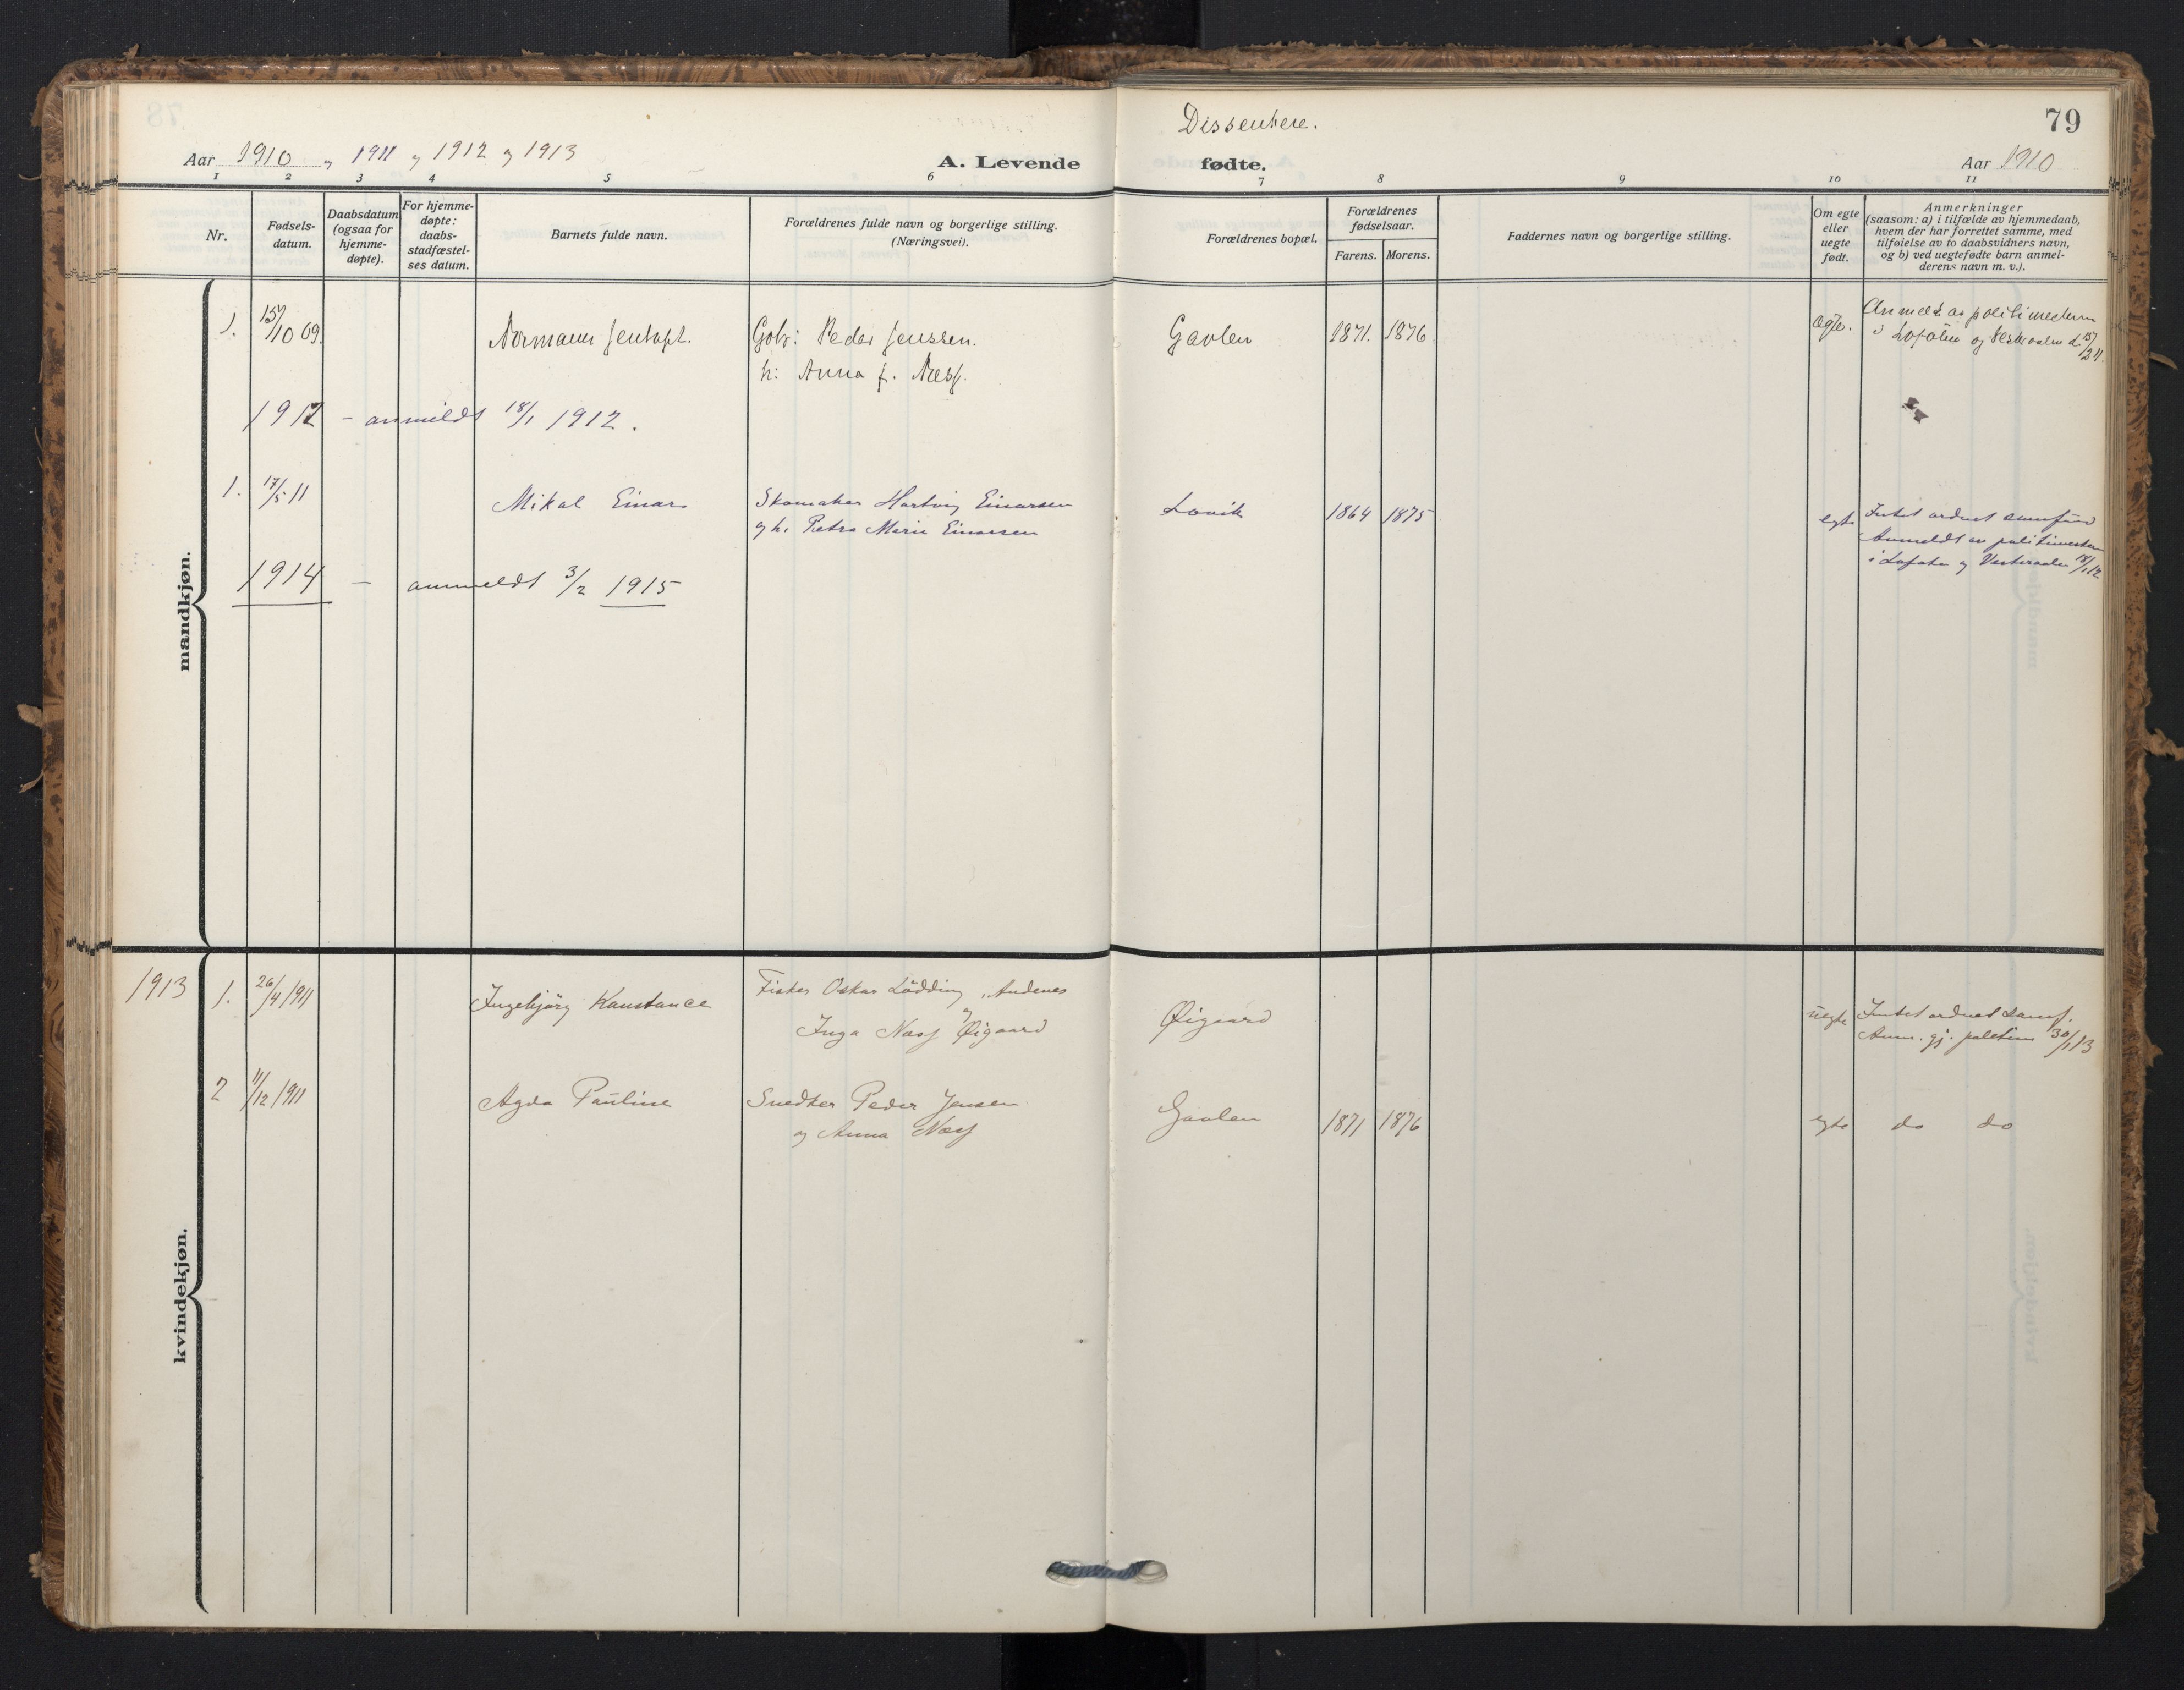 Dissentere.
79
Aar 1910 og 1911 og 1912 og 1913
A. Levende fødte.
Aar 1910
1 2 3 4 5 6 7 8 9 10 11
Nr.
Fødsels-
datum.
Daabsdatum
(ogsaa for
hjemme-
døpte).
For hjemme-
døpte:
daabs-
stadfæstel-
ses datum.
Barnets fulde navn.
Forældrenes fulde navn og borgerlige stilling.
(Næringsvei).
Forældrenes bopæl.
Forældrenes
fødselsaar.
Farens. Morens.
Faddernes navn og borgerlige stilling.
Om egte
eller
uegte
født.
Anmerkninger
(saasom: a) i tilfælde av hjemmedaab,
hvem der har forrettet samme, med
tilføielse av to daabsvidners navn,
og b) ved uegtefødte barn anmel-
derens navn m. v.).
mandkjøn.
1. 15/10 09. Normann Jentoft. Gbr: Peder Jenssen. Gavlen 1871. 1876. ægte. Anmeldt av politimesteren
h: Anna f. Næss. i Lofoten og Vesteraalen d. 15/2 11.
1912 - anmeldt 18/1 1912.
1. 17/5 11 Mikal Einar Skomaker Hartvig Einarsen Lovik 1864 1875 egte Intet ordnet samfund
og h. Petra Marie Einarsen Anmeldt av politimesteren
i Lofoten og Vesteraalen 18/1 12
1914 - anmeldt 3/2 1915
kvindekjøn.
1913 1. 26/4 1911 Ingebjörg Konstance Fisker Oskar Lödding, Andenes
og Inga Næss Øigaard Øigaard uegte Intet ordnet samf.
Anm. gj. politim 30/1 13
2 11/12 1911 Agda Pauline Snedker Peder Jensen Gavlen 1871 1876 egte do do
og Anna Næss